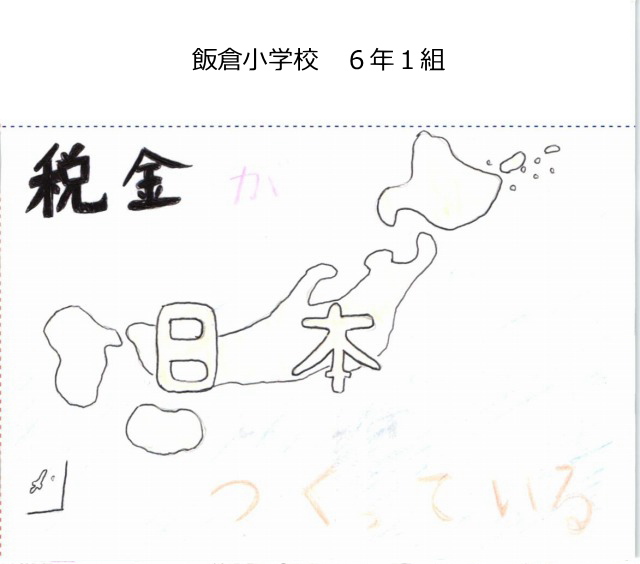 飯倉小学校　６年１組
税金が
日本
つくっている